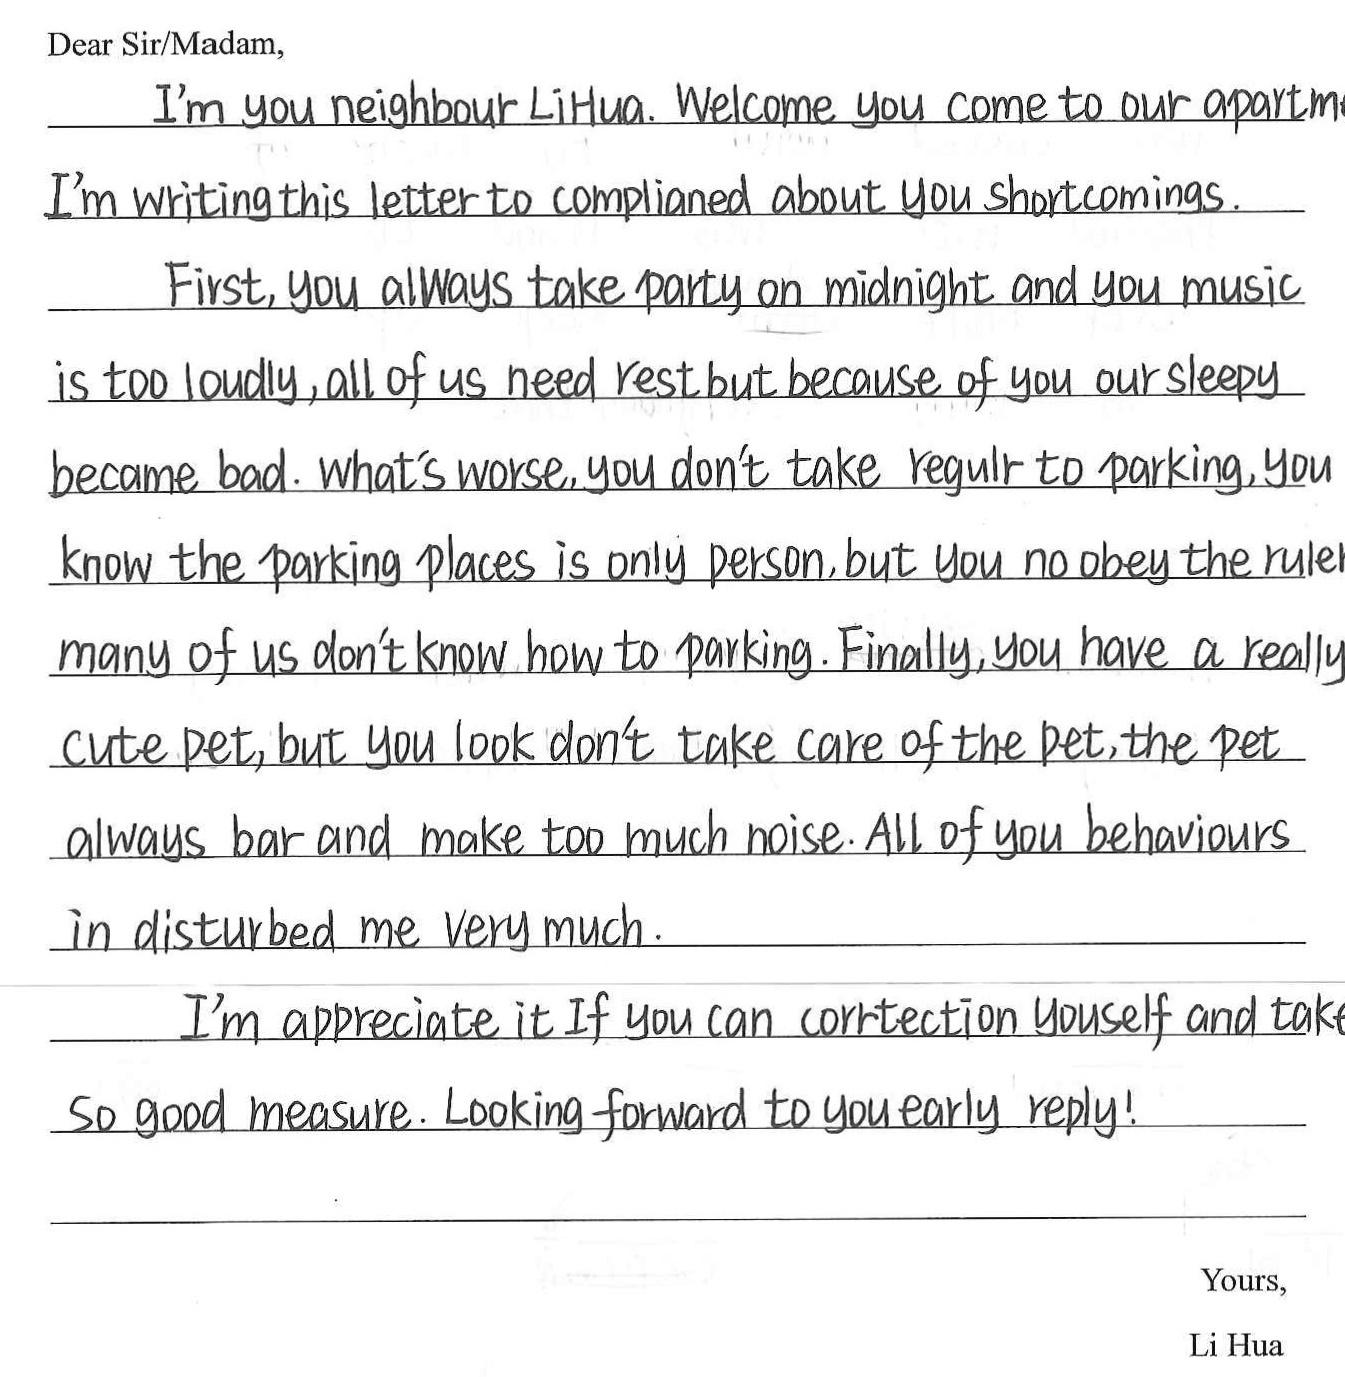 Dear Sir/Madam,
I'm you neighbour LiHua. Welcome you come to our apartm
I'm writing this letter to complianed about you shortcomings.
First, you always take party on midnight and you music
is too loudly, all of us need rest but because of you our sleepy
became bad. What's worse, you don't take regulr to parking, you
know the parking places is only person, but you no obey the ruler
many of us don't know how to parking. Finally, you have a really
cute pet, but you look don't take care of the pet, the pet
always bar and make too much noise. All of you behaviours
in disturbed me very much.
I'm appreciate it If you can corrtection youself and take
so good measure. Looking forward to you early reply!
Yours,
Li Hua